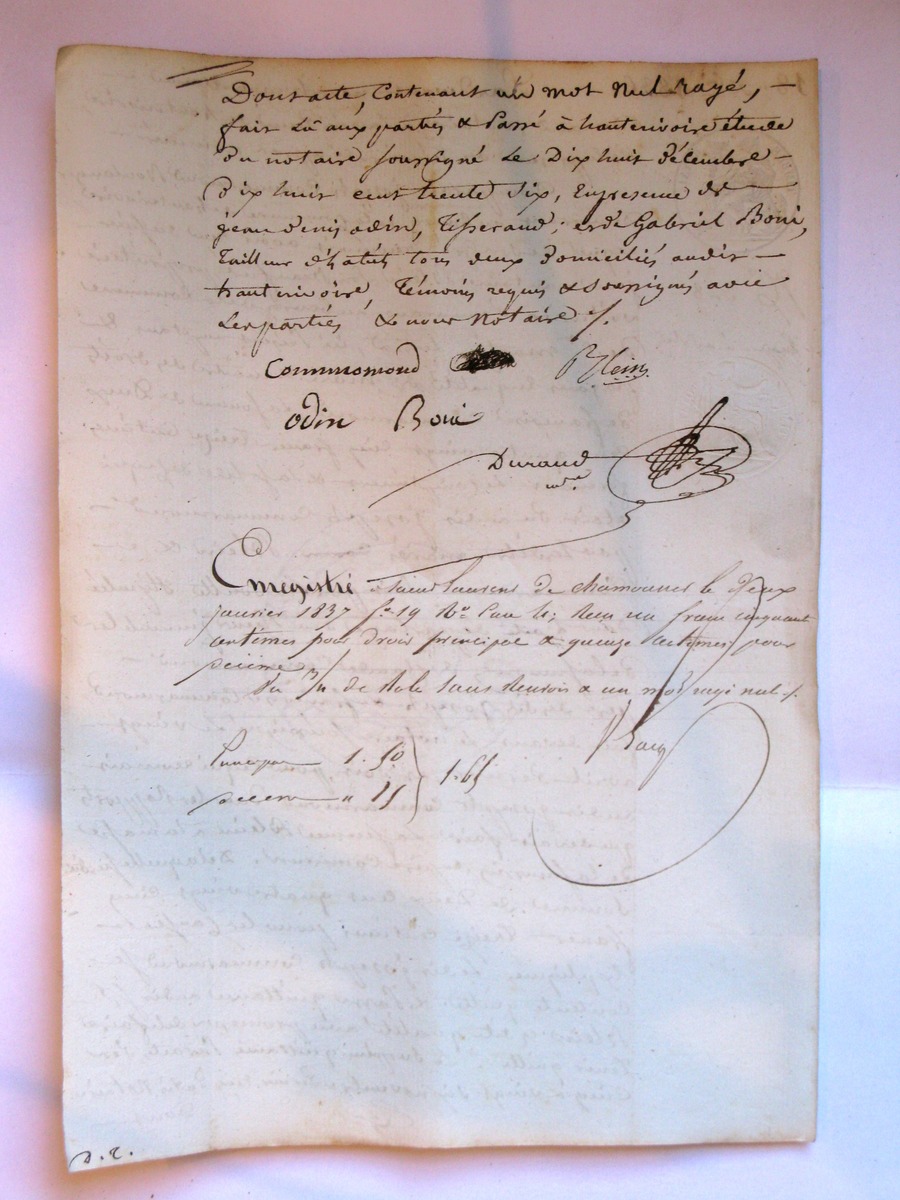 Dont acte, Contenant un mot nul rayé, —
fait Lû aux partiés & Passé à hauterivoire étude
du notaire soussigné Le Dix huit décembre —
dix huit cent trente Six, En presence de —
jean denis odin, Tisserand; et de Gabriel Boni,
Tailleur d'habits tous deux domiciliés audit —
hauterivoire, Témoins requis & soussignés avec
Les partiés & nous Notaire /.
Commomond Blein
odin Boni
Durand
nre
Enregistré à Saint Laurent de chamousset le deux
janvier 1837 fo 19 Ro Case 6; Reçu un franc cinquante
centimes pour droit principal & quinze centimes pour
décime
Du de Role Sans Renvois & un mot rayé nul /.
Principal 1. 50
décime " 15 1.65
D. C.